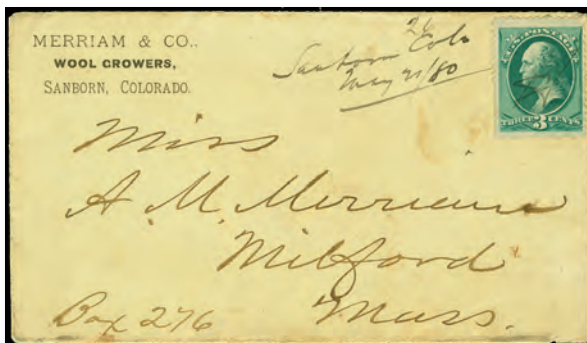 MERRIAM & CO.,
WOOL GROWERS,
SANBORN, COLORADO.
Sanborn Colo
May 21/80
U.S. POSTAGE
THREE 3 CENTS
Miss
A. M. Merriam
Milford
Mass.
Box 276